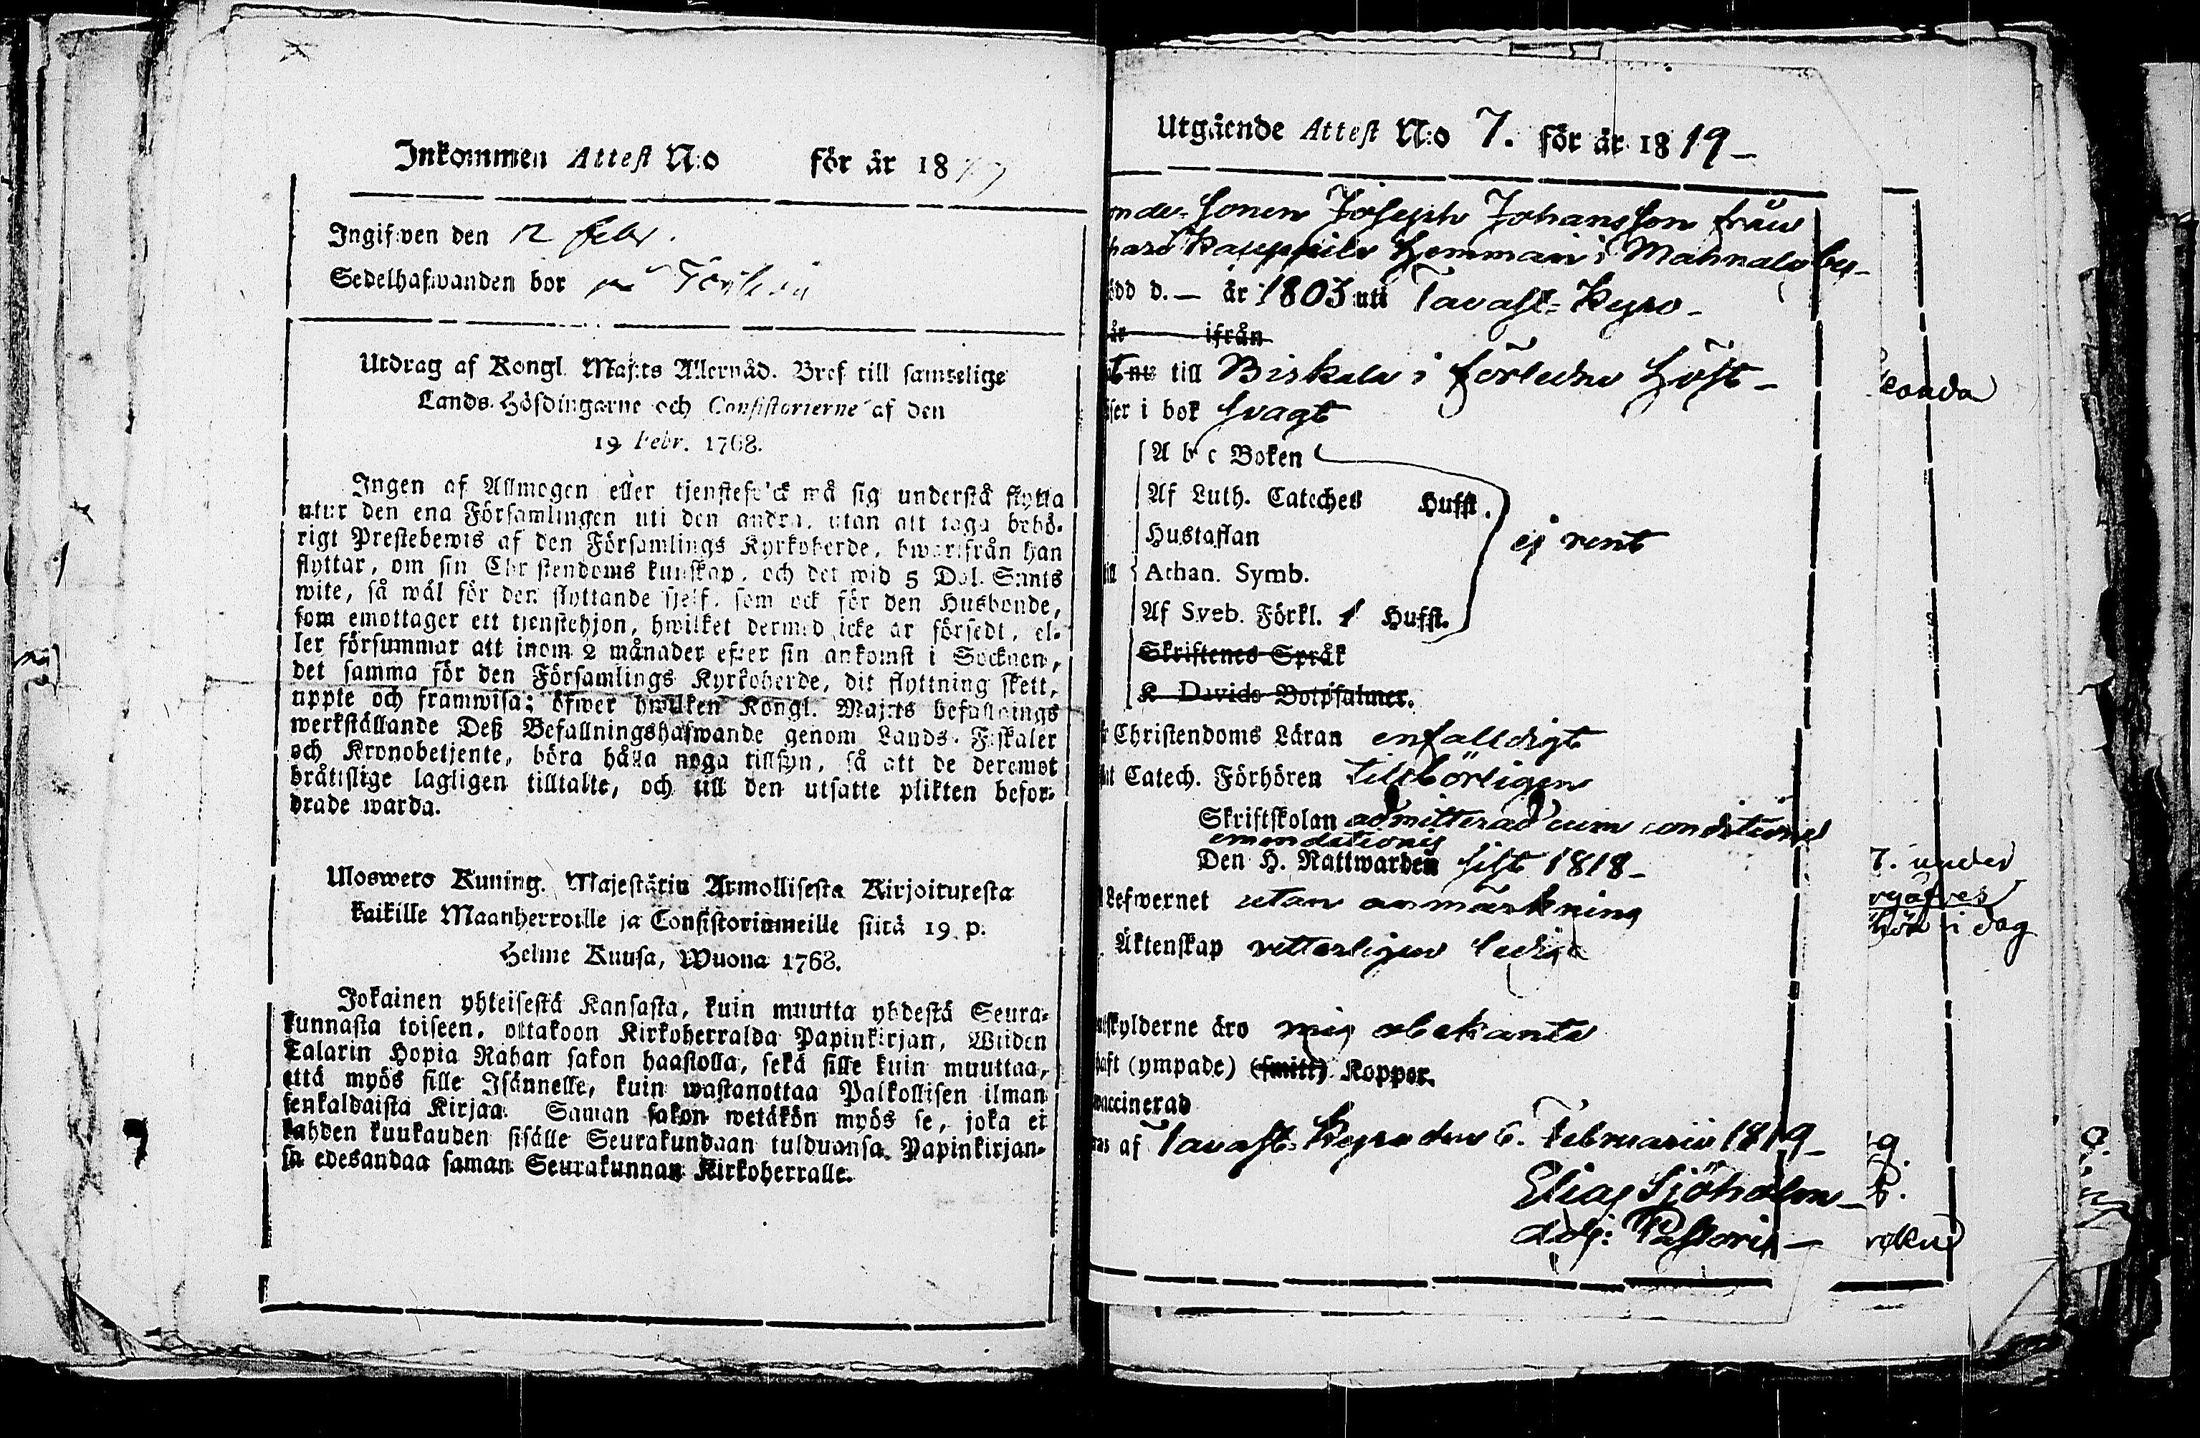 Inkommen Attest N:o för år 18
Ingifwen den 12 febr.
Sedelhafwanden bor på
Utdrag af Kongl. Maj:ts Allernåd. Bref till samtelige
Lands-Höfdingarne och Consistorierne af den
19 Febr. 1768.
Ingen af Allmogen eller tjenstefolck må sig understå flytta
utur den ena Församlingen uti den andra, utan att taga behö-
rigt Prestebewis af den Församlings Kyrkoherde, hwarifrån han
flyttar, om sin Christendoms kunskap, och det wid 5 Dal. S:mts
wite, så wäl för den flyttande sjelf, som ock för den Husbonde,
som emottager ett tjenstehjon, hwilket dermed icke är försedt, el-
ler försummar att inom 2 månader efter sin ankomst i Socknen,
det samma för den Församlings Kyrkoherde, dit flyttning skett,
uppte och framwisa; öfwer hwilken Kongl. Maj:ts befallnings
werkställande Deß Befallningshafwande genom Lands-Fiskaler
och Kronobetjente, böra hålla noga tillsyn, så att de deremot
bråtislige lagligen tilltalte, och till den utsatte plikten befor-
drade warda.
Uloswето Kuning. Majestätin Armollisesta Kirjoituxesta
kaikille Maanherroille ja Consistoriumeille siitä 19 p.
Helme Kuusa, Wuona 1768.
Jokainen yhteisestä Kansasta, kuin muutta yhdestä Seura-
kunnasta toiseen, ottakoon Kirkoherralda Papinkirjan, Wiiden
Talarin Hopia Rahan sakon haastolla, sekä sille kuin muuttaa,
että myös sille Isännelle, kuin wastanottaa Palkollisen ilman
senkaldaista Kirjaa. Saman sakon wetäkön myös se, joka ei
kahden kuukauden sisälle Seurakundaan tulduansa, Papinkirjan-
sa edesandaa saman Seurakunnan Kirkoherralle.
Utgående Attest N:o 7. för år 1819 —
onde-Sonen Joseph Johansson från
Kauppila Hemman i Mahnala by —
ödd d. — år 1803 uti Tavast-Kyro —
år ifrån
nu till Birkala i förledne Höst —
ser i bok svagt
A b c Boken
Af Luth. Cateches Hufst.
Hustaflan
ej rent
till Athan. Symb.
Af Sveb. Förkl. 1 Hufst.
Skriftenes Språk
K Davids Botpsalmer.
Christendoms Läran enfalldigt
Catech. Förhören tillbörligen
Skriftskolan admitterad cum conditione
emendationis
Den H. Nattwarden sist 1818 —
Lefwernet utan anmärkning
Äktenskap vetterligen ledig
skylderne äro mig obekante
haft (ympade) (smitt) Koppor.
vaccinerad
af Tavast-Kyro den 6. Februarii 1819 —
Elias Sjöholm —
Adj: Pastoris —
7. under
i dag
9.